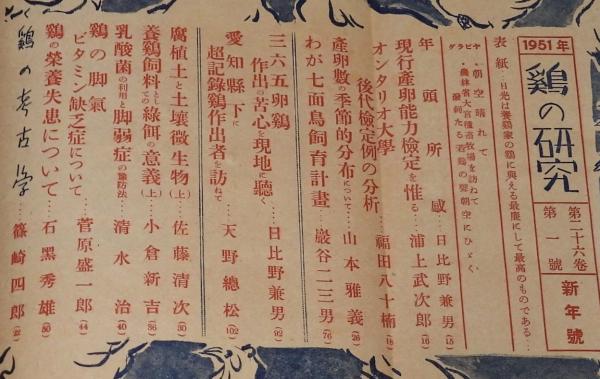 1951年
鷄の硏究
第二十六卷
第一號
新年號
表紙…日光は養鷄家の鷄に與える最廉にして最高のものである…
グラビヤ
・朝空晴れて
・農林省大宮種畜牧場を訪ねて
潑剌たる若鷄の聲朝空にひゞく
年頭所感…日比野兼男(15)
現行產卵能力檢定を惟る…浦上武次郎(16)
オンタリオ大學
後代檢定例の分析…福田八十楠(18)
產卵數の季節的分布について…山本雅義(26)
わが七面鳥飼育計畫…巖谷二三男(76)
三六五卵鷄
作出の苦心を現地に聽く…日比野兼男(92)
愛知縣下に
超記錄鷄作出者を訪ねて…天野總松(102)
腐植土と土壤微生物(上)…佐藤淸次(30)
養鷄飼料としての綠餌の意義(上)…小倉新吉(36)
乳酸菌の利用と脚弱症の豫防法…淸水治(40)
鷄の脚氣
ビタミン缺乏症について…菅原盛一郎(44)
鷄の榮養失患について…石黑秀雄(50)
鷄の考古學…篠崎四郎